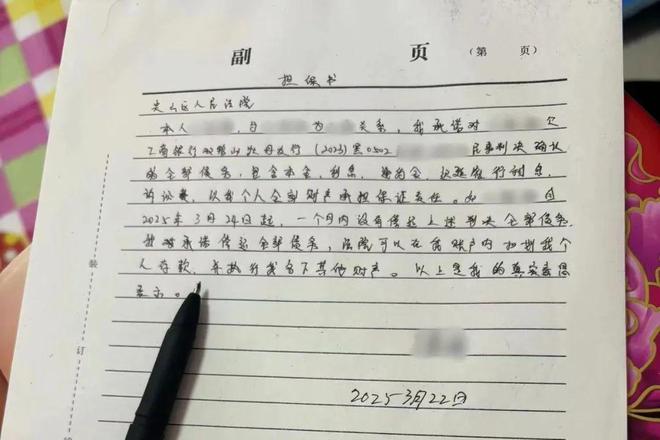 副 页 (第 页)
担保书
尖山区人民法院
本人 与 为 关系，我承诺对 欠
工商银行双鸭山 支行 (2023)黑0502 民事判决确认
的全部债务，包含本金，利息，违约金，迟延履行利息，
诉讼费，以我个人全部财产承担保证责任。如 自
2025年3月24日起，一个月内没有偿还上述判决全部债务，
我对承诺偿还全部债务，法院可以在我账户内扣划我个
人存款，并执行我名下其他财产。以上是我的真实意思
表示。
2025年3月22日
装
订